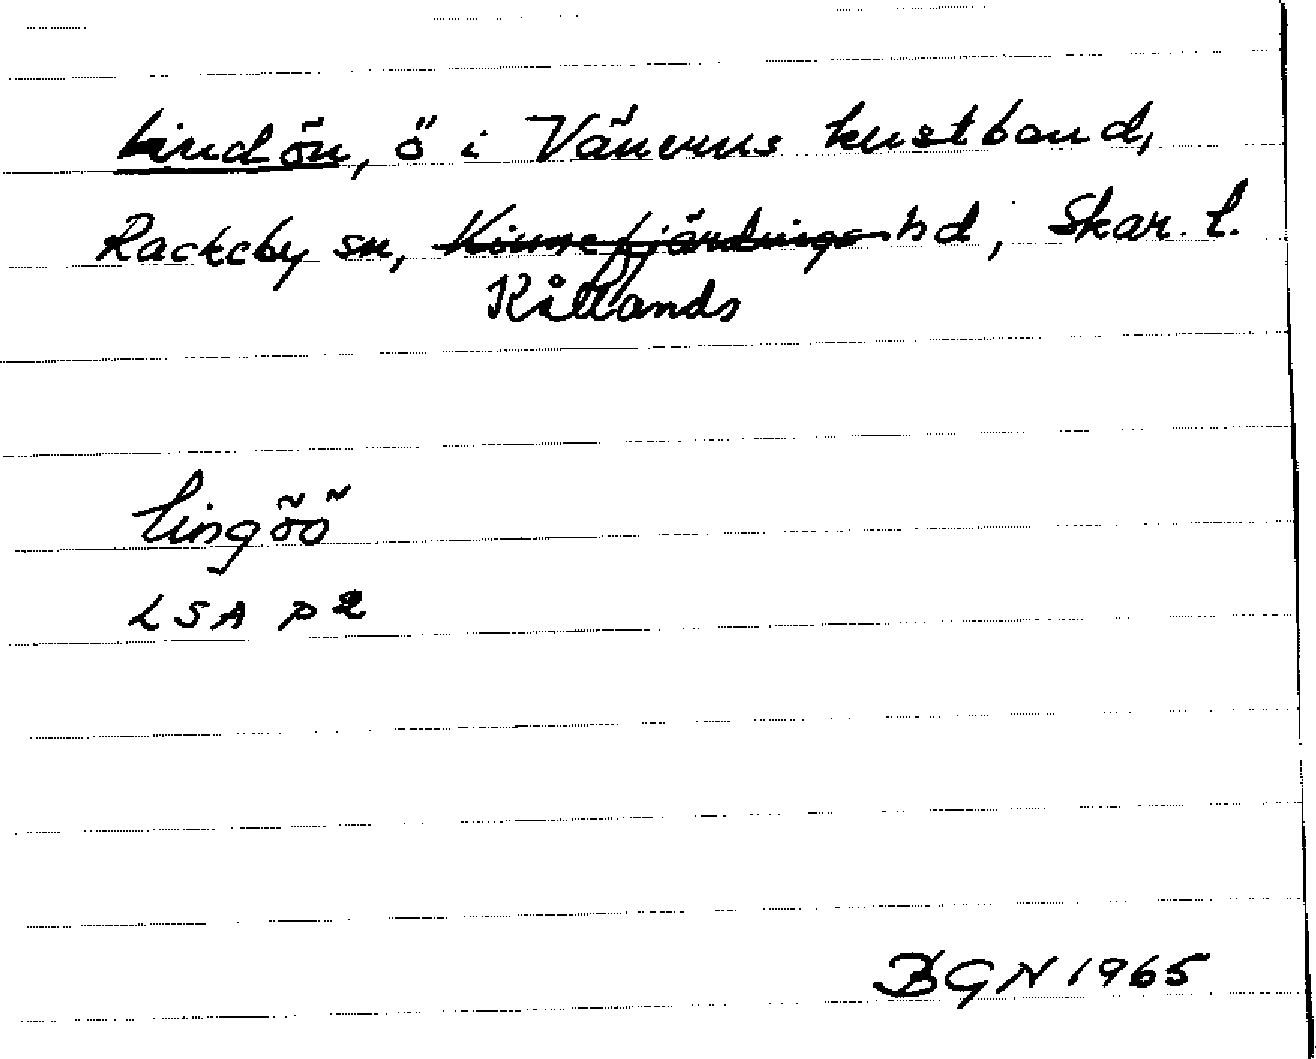 Lindön, ö i Vänerns kustband,
Rackeby sn, Kinnefjärdings hd, Skar. l.
Kållands
Lingöö
LSA P2
BGN 1965